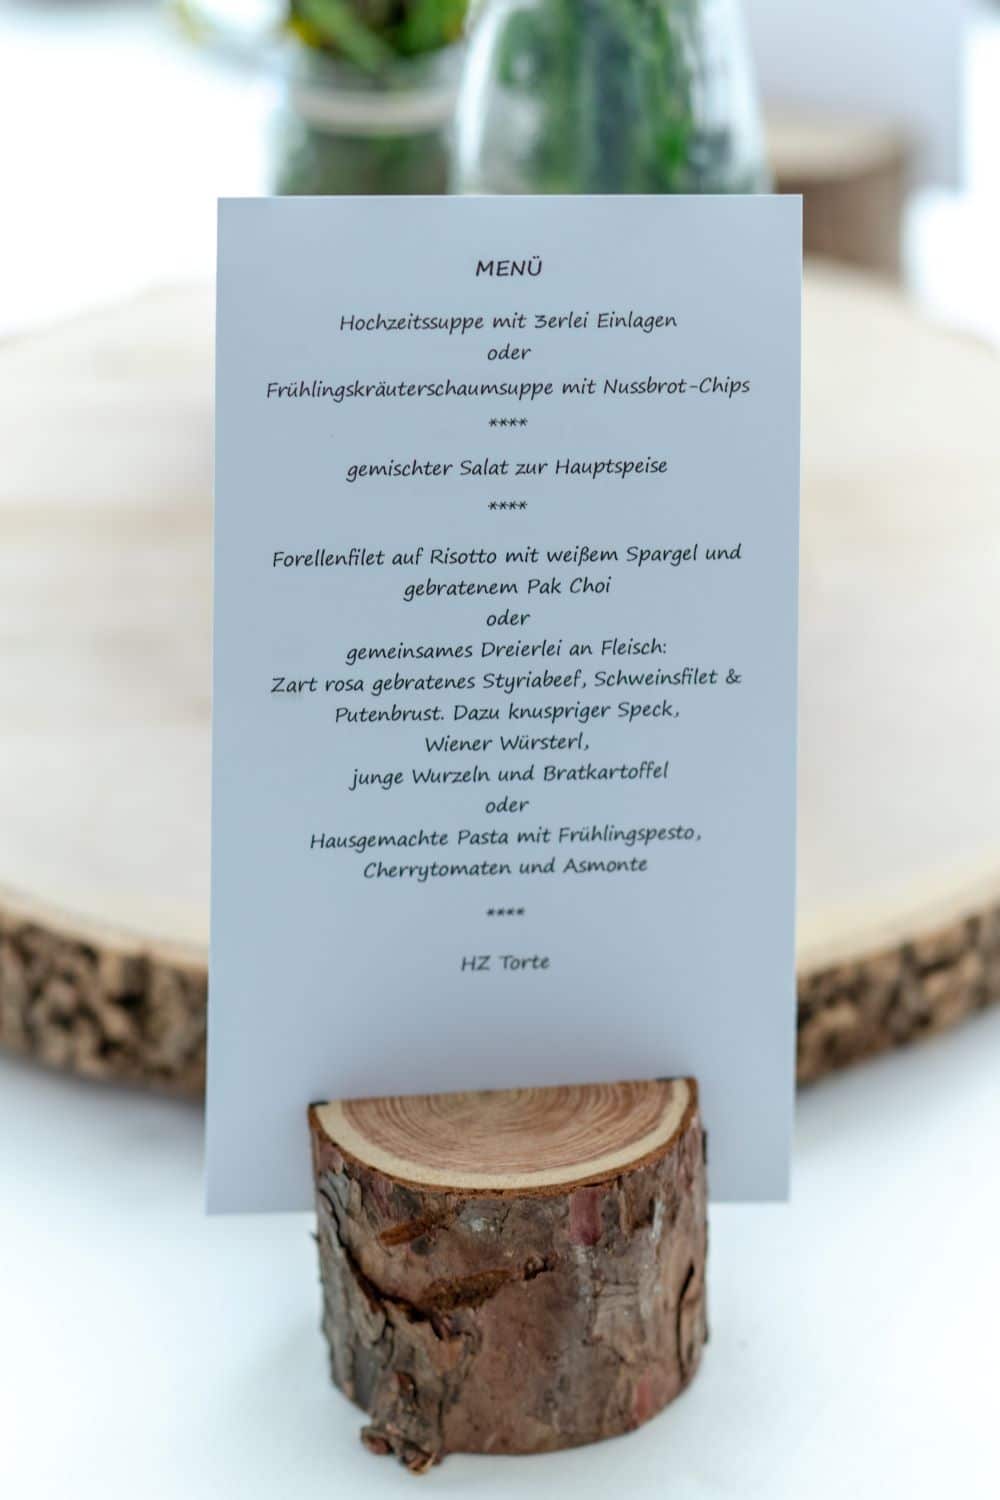 MENÜ
Hochzeitssuppe mit 3erlei Einlagen
oder
Frühlingskräuterschaumsuppe mit Nussbrot-Chips
****
gemischter Salat zur Hauptspeise
****
Forellenfilet auf Risotto mit weißem Spargel und
gebratenem Pak Choi
oder
gemeinsames Dreierlei an Fleisch:
Zart rosa gebratenes Styriabeef, Schweinsfilet &
Putenbrust. Dazu knuspriger Speck,
Wiener Würsterl,
junge Wurzeln und Bratkartoffel
oder
Hausgemachte Pasta mit Frühlingspesto,
Cherrytomaten und Asmonte
****
HZ Torte